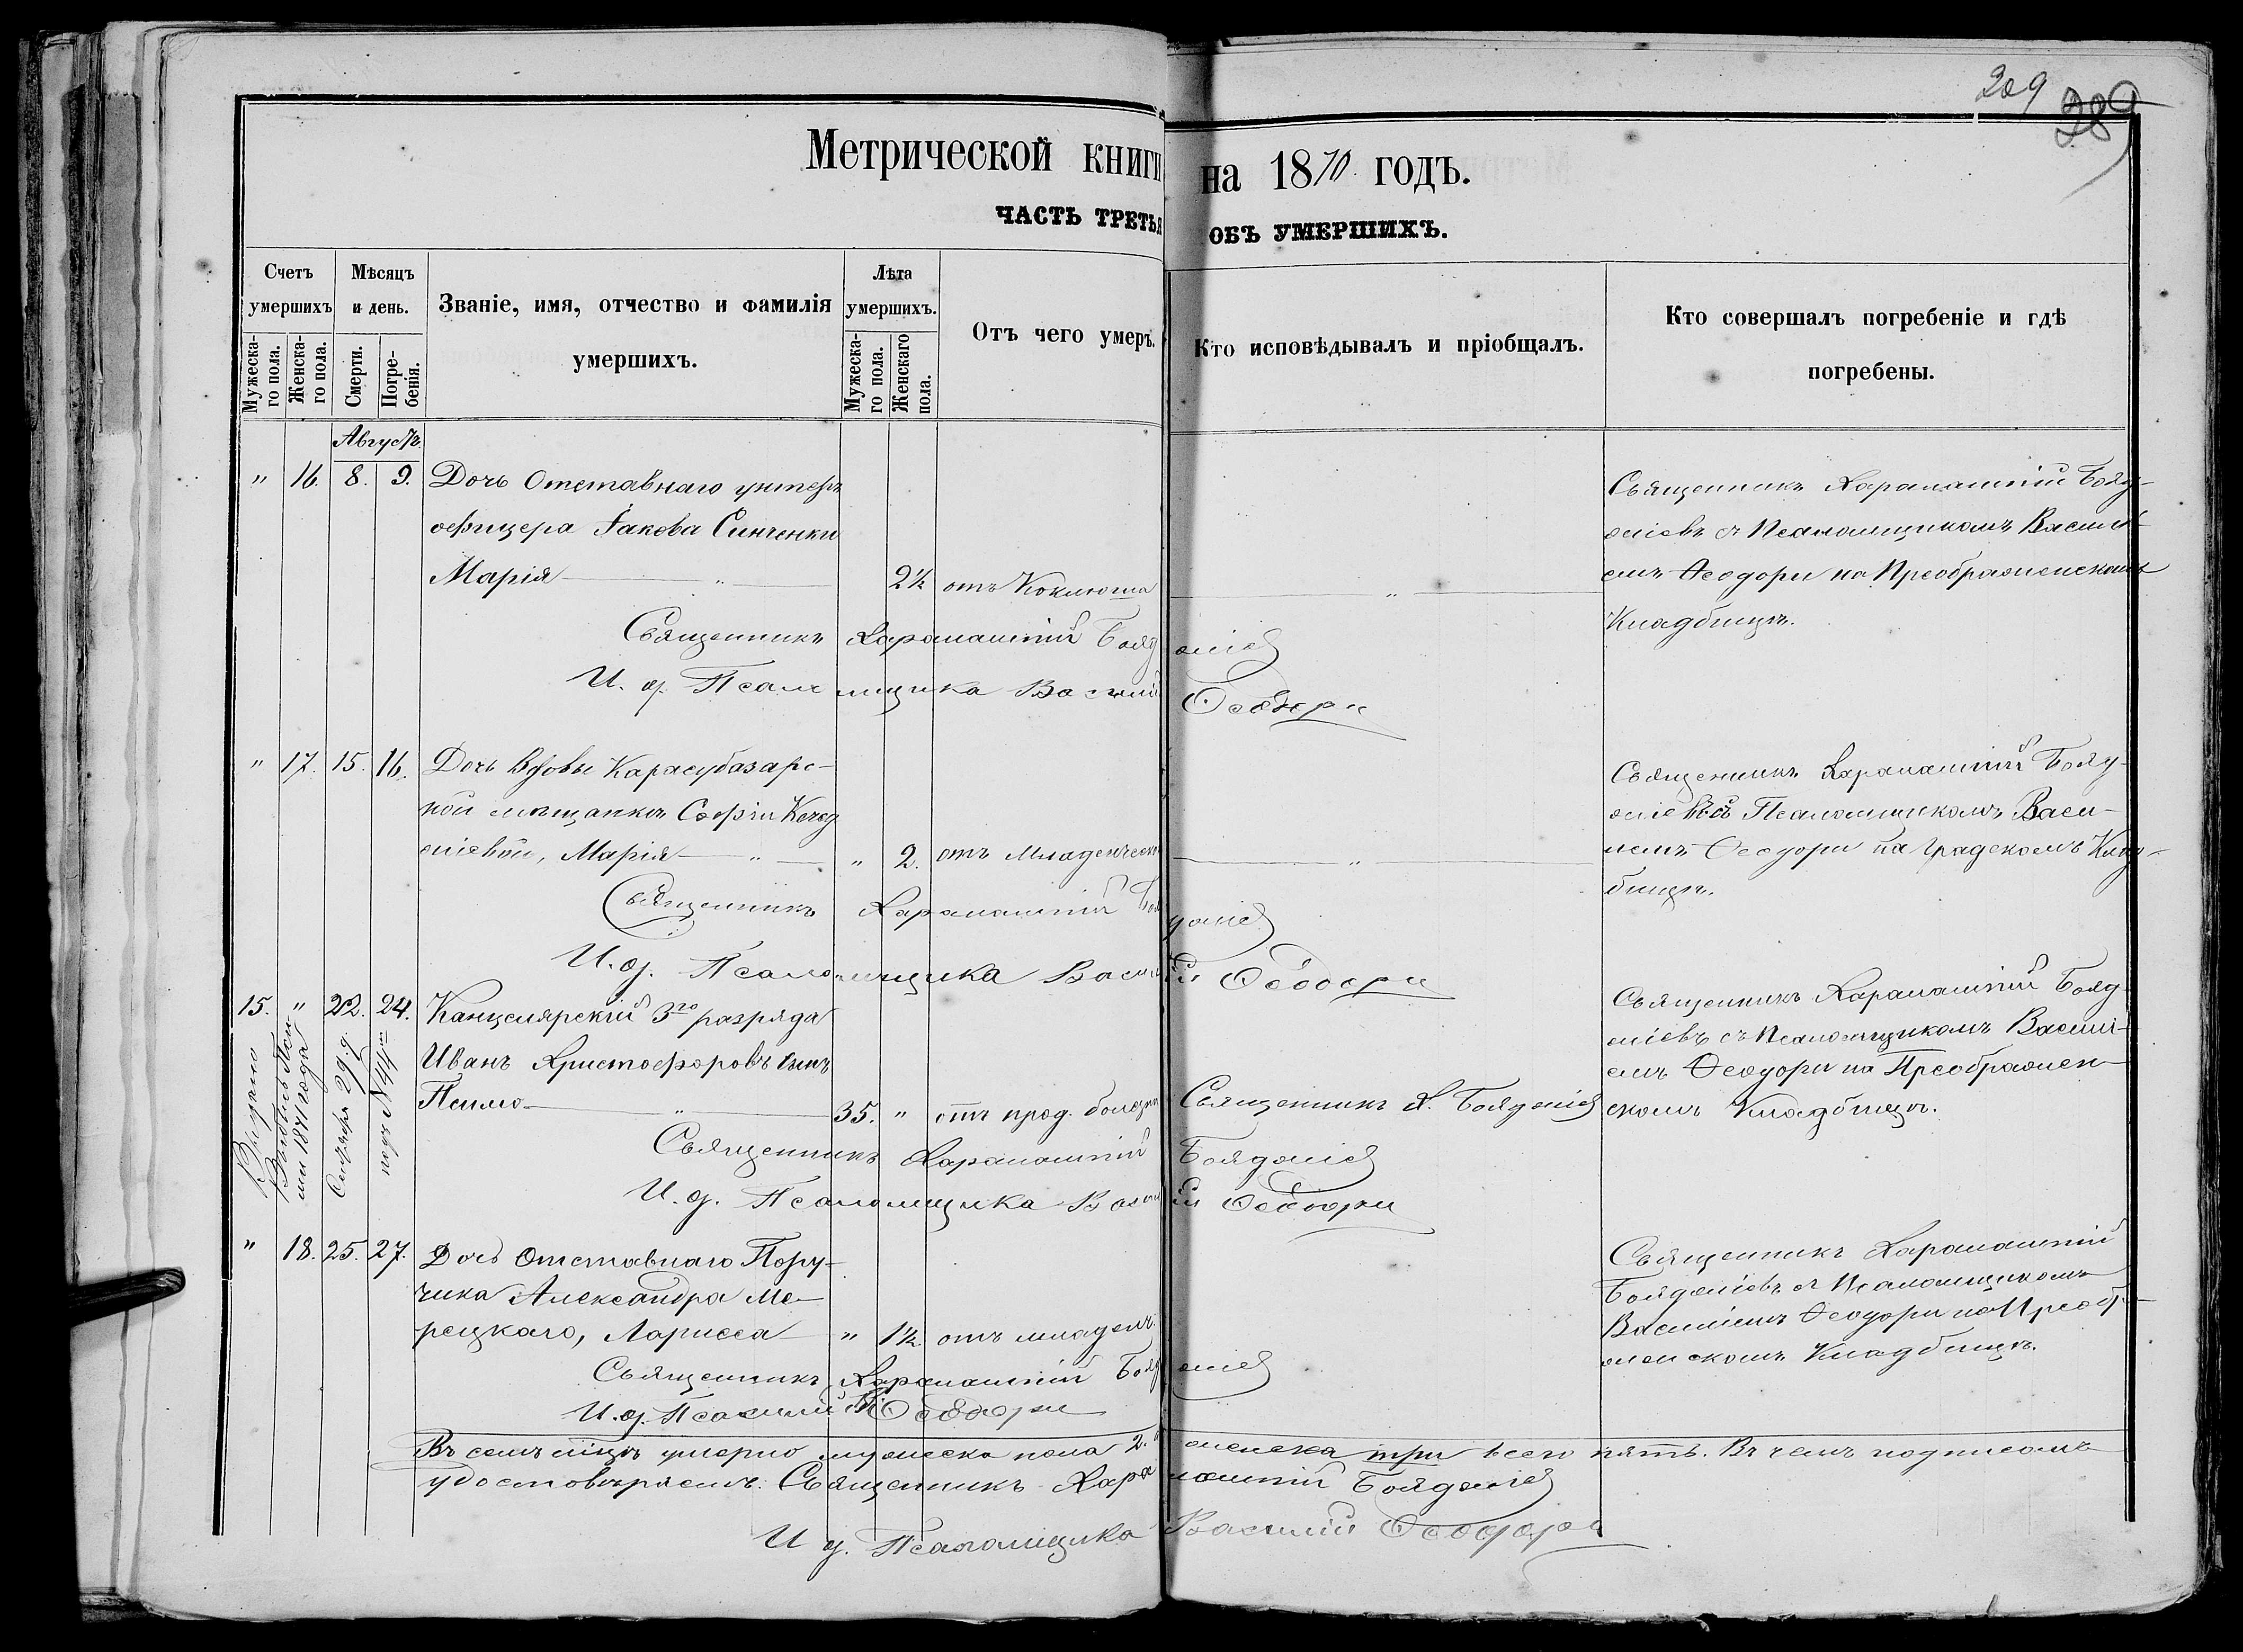 209
289
Метрической книги на 1870 годъ.
ЧАСТЬ ТРЕТЬЯ ОБЪ УМЕРШИХЪ.
Счетъ умершихъ
Мужеска-го пола.
Женска-го пола.
Мѣсяцъ и день.
Смерти.
Погре-бенія.
Званіе, имя, отчество и фамилія умершихъ.
Лѣта умершихъ.
Мужеска-го пола.
Женскаго пола.
Отъ чего умеръ.
Кто исповѣдывалъ и пріобщалъ.
Кто совершалъ погребеніе и гдѣ погребены.
Августъ
" 16. 8. 9. Дочь Отставнаго унтеръ
офицера Іакова Синченки
Марія — " — 2½ отъ Коклюша — " —
Священникъ Харалампій Бояд-
жіевъ съ Псаломщикомъ Васил-
емъ Ѳеодори на Преображенскомъ
Кладбищѣ.
Священникъ Харалампій Бояджіев
И. д. Псаломщика Василій Ѳеодори
" 17. 15. 16. Дочь Вдовы Карасубазарс-
кой мѣщанки Софіи
Марія — " — " 2. отъ Младенческ — " —
Священникъ Харалампій Бояд-
жіевъ съ Псаломщикомъ Васи-
лемъ Ѳеодори на Градскомъ Клад-
бищѣ.
Священникъ Харалампій Бояджіев
И. д. Псаломщика Василій Ѳеодори
15. " 22. 24. Канцелярскій 3го разряда
Иванъ Христофоровъ сынъ
— " — 35. " отъ прод. болѣзни Священникъ Х. Бояджіев
Священникъ Харалампій Бояд-
жіевъ съ Псаломщикомъ Васил-
емъ Ѳеодори на Преображен-
скомъ Кладбищѣ.
Выдано
1871 года
29 д.
подъ №
Священникъ Харалампій Бояджіев
И. д. Псаломщика Василій Ѳеодори
" 18. 25. 27. Дочь Отставнаго Пору-
чика Александра Ме-
рецкаго, Ларисса — " 1½ отъ младенч.
Священникъ Харалампій
Бояджіевъ съ Псаломщикомъ
Василіемъ Ѳеодори на Преобр-
женскомъ Кладбищѣ.
Священникъ Харалампій Бояджіев
И. д. Ѳеодори
Въ семъ м͠цѣ умерло мужеска пола 2. женска три всего пять. Въ чемъ подписомъ
удостовѣряемъ. Священникъ Харалампій Бояджіев
И д. Псаломщика Василій Ѳеодори